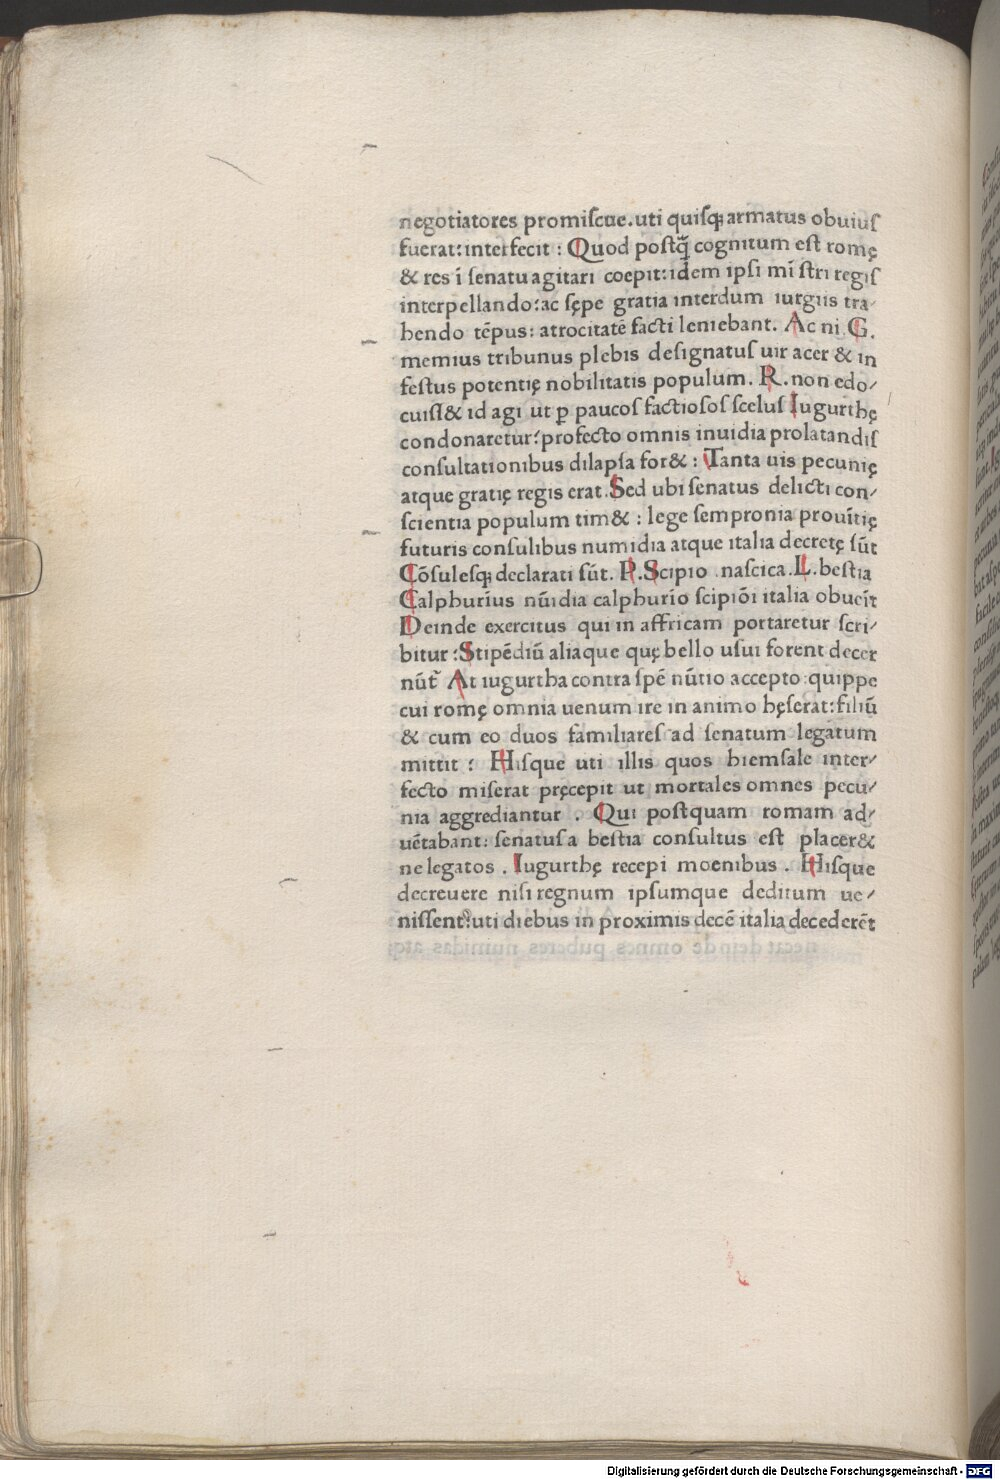 negotiatores promiſcue.uti quiſqꝫ armatus obuiuſ
fuerat:interfecit : Quod poſtq̃ cognitum eſt romę
& res ĩ ſenatu agitari coepit:idem ipſi mĩ ſtri regiſ
interpellando:ac ſępe gratia interdum iurgiis tra⸗
hendo tẽpus: atrocitatẽ facti leniebant. Ac ni G.
memius tribunus plebis deſignatuſ uir acer & in
feſtus potentię nobilitatis populum. R. non edo⸗
cuiſſ& id agi ut ꝑ paucoſ factioſoſ ſceluſ Iugurthę
condonaretur:profecto omnis inuidia prolatandiſ
conſultationibus dilapſa for& : Tanta uis pecunię
atque gratię regis erat.Sed ubi ſenatus delicti con⸗
ſcientia populum tim& : lege ſempronia prouĩtię
futuris conſulibus numidia atque italia decretę ſũt
Cõſuleſqꝫ declarati ſũt. P. Scipio naſcica. L. beſtia
Calphurĩus nũidia calphurĩo ſcipiõi italia obueĩt
Deinde exercitus qui in affricam portaretur ſcri⸗
bitur :Stipẽdiũ aliaque quę bello uſui forent decer
nũt̃ At iugurtha contra ſpẽ nũtio accepto:quippe
cui romę omnia uenum ire in animo hęſerat:filiũ
& cum eo duos familiareſ ad ſenatum legatum
mittit : Hiſque uti illis quos hiemſale inter⸗
fecto miſerat pręcepit ut mortales omnes pecu⸗
nia aggrediantur . Qui poſtquam romam ad⸗
uẽtabant: ſenatuſ a beſtia conſultus eſt placer&
ne legatos . Iugurthę recepi moenibus . Hiſque
decreuere niſi regnum ipſumque deditum ue⸗
niſſent:uti diebus in proximis decẽ italia decederẽt
Digitalisierung gefördert durch die Deutsche Forschungsgemeinschaft - DFG